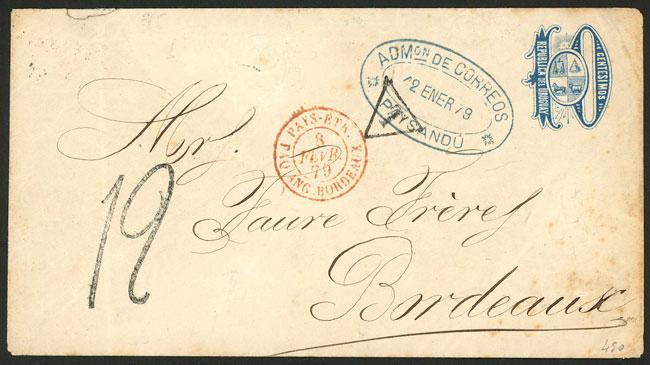 ADMON DE CORREOS
12 ENER 79
PAYSANDÚ
CENTESIMOS
REPUBLICA DEL URUGUAY
T
PAYS-ETR.
8
FEVR.
79
PAQ. ANG. BORDEAUX
Mrs.
Faure Frères
Bordeaux
12
450